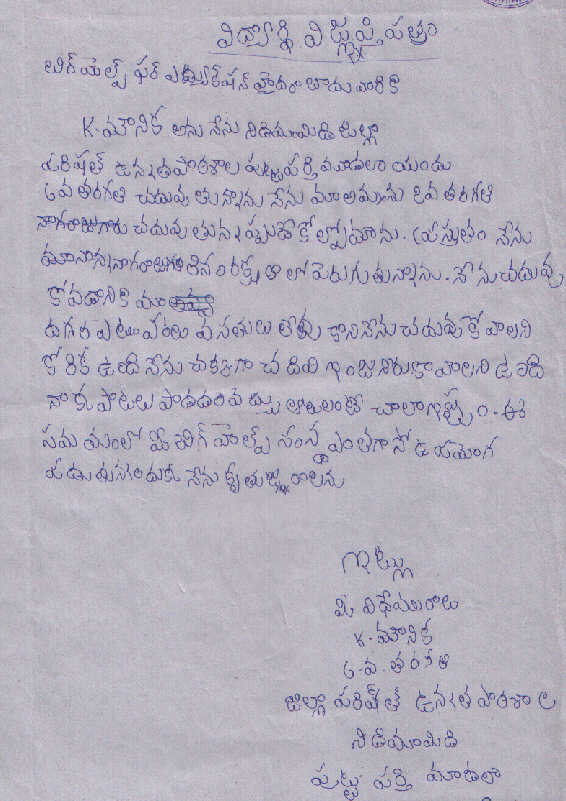 విద్యార్థి విజ్ఞప్తి పత్రం
బిగ్ హెల్ప్ ఫర్ ఎడ్యుకేషన్ హైదరాబాదు వారికి
K. మౌనిక అను నేను నిడిమామిడి జిల్లా
పరిషత్ ఉన్నత పాఠశాల పుట్టపర్తి మండలం యందు
6వ తరగతి చదువుతున్నాను నేను మా అమ్మను 2వ తరగతి
చదువుతున్నప్పుడే కోల్పోయాను. ప్రస్తుతం నేను
మా నాన్న నాగరాజుగారి సంరక్షణలో పెరుగుతున్నాను. నేను చదువు
కోవడానికి మా
దగ్గర ఎటువంటి వసతులు లేవు కాని నేను చదువుకోవాలని
కోరిక ఉంది నేను చక్కగా చదివి ఇంజనీరు కావాలని ఉంది
నాకు పాటలు పాడడం బొమ్మలంటే చాలా ఇష్టం. ఈ
సమయంలో మీ బిగ్ హెల్ప్ సంస్థ ఎంతగానో ఉపయోగ
పడుతున్నందుకు నేను కృతజ్ఞురాలను
ఇట్లు
మీ విధేయురాలు
K. మౌనిక
6. వ. తరగతి
జిల్లా పరిషత్ ఉన్నత పాఠశాల
నిడిమామిడి
పుట్టపర్తి మండలం